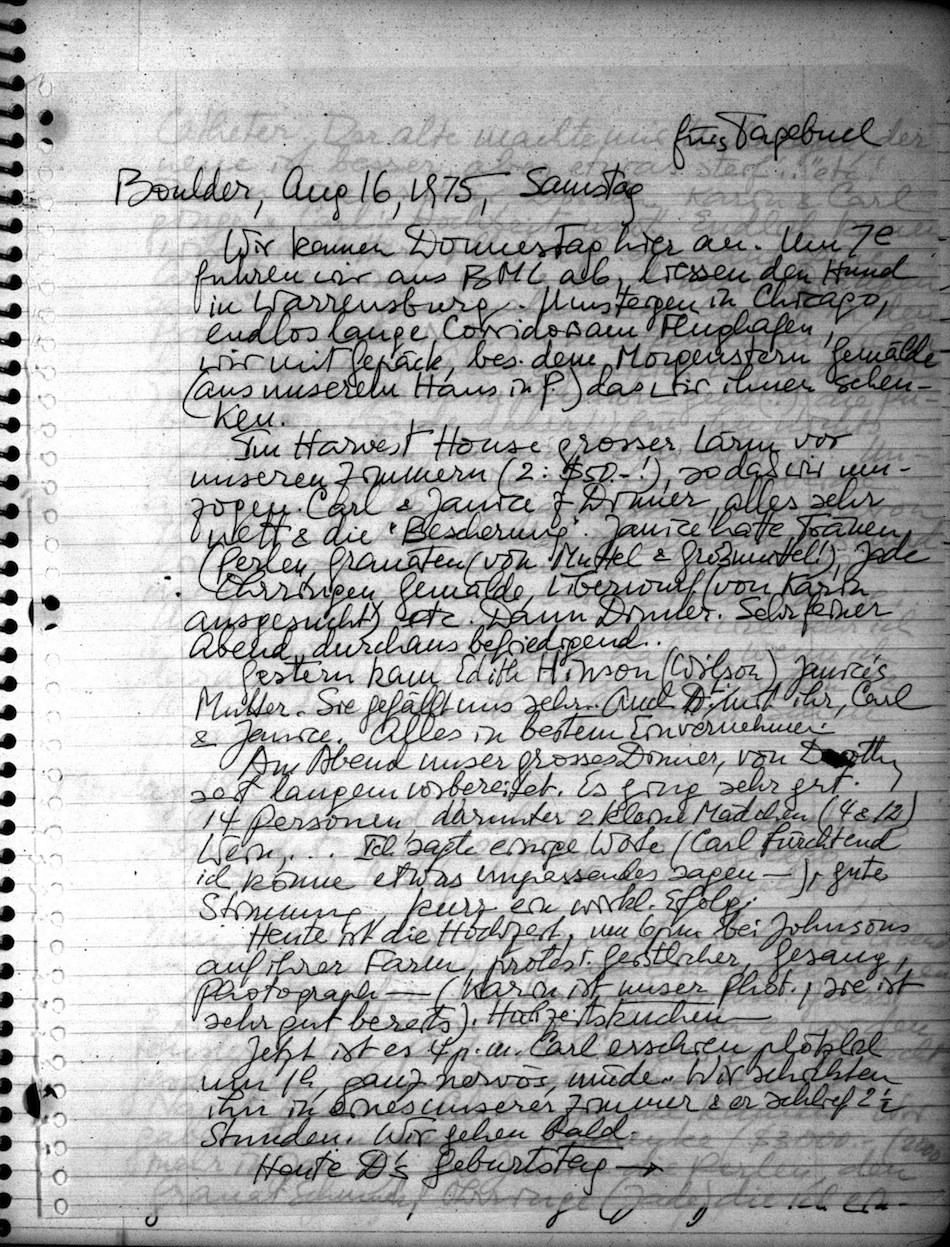 fürs Tagebuch
Boulder, Aug 16, 1975, Samstag
Wir kamen Donnerstag hier an. Um 7e
fuhren wir aus BML ab, liessen den Hund
in Warrensburg. Umsteigen in Chicago,
endlos lange Corridors am Flughafen,
wir mit Gepäck, bes. dem Morgenstern Gemälde
(aus unserem Haus in P.) das wir ihnen schen-
ken.
Im Harvest House grosser Lärm vor
unseren Zimmern (2: $50.-!), sodass wir um-
zogen. Carl & Janice z Dinner, alles sehr
nett & die "Bescherung". Janice hatte Tränen,
(Perlen, Granaten (von Muttel & Großmuttel!), Jade
Ohrringen, Gemälde, Überwurf (von Karin
ausgesucht) etc. Dann Dinner. Sehr feiner
Abend, durchaus befriedigend.
Gestern kam Edith Hinson (Wilson) Janice's
Mutter. Sie gefällt uns sehr. Auch D. mit ihr, Carl
& Janice. Alles in bestem Einvernehmen.
Am Abend unser grosses Dinner, von Dorothy
seit langem vorbereitet. Es ging sehr gut.
14 Personen, darunter 2 kleine Mädchen (4 & 12)
Wein, ... Ich sagte einige Worte (Carl fürchtend
ich könne etwas unpassendes sagen —), gute
Stimmung, kurz ein wirkl. Erfolg.
Heute ist die Hochzeit, um 6 pm bei Johnsons
auf ihrer Farm, protest. Geistlicher, Gesang,
Photograph — (Karin ist unser Phot., sie ist
sehr gut bereits). Hochzeitskuchen —
Jetzt ist es 4 p.m. Carl erschien plötzlich
um 1h, ganz nervös, müde. Wir schickten
ihn in eines unserer Zimmer & er schlief 2½
Stunden. Wir gehen bald.
Heute D's Geburtstag →